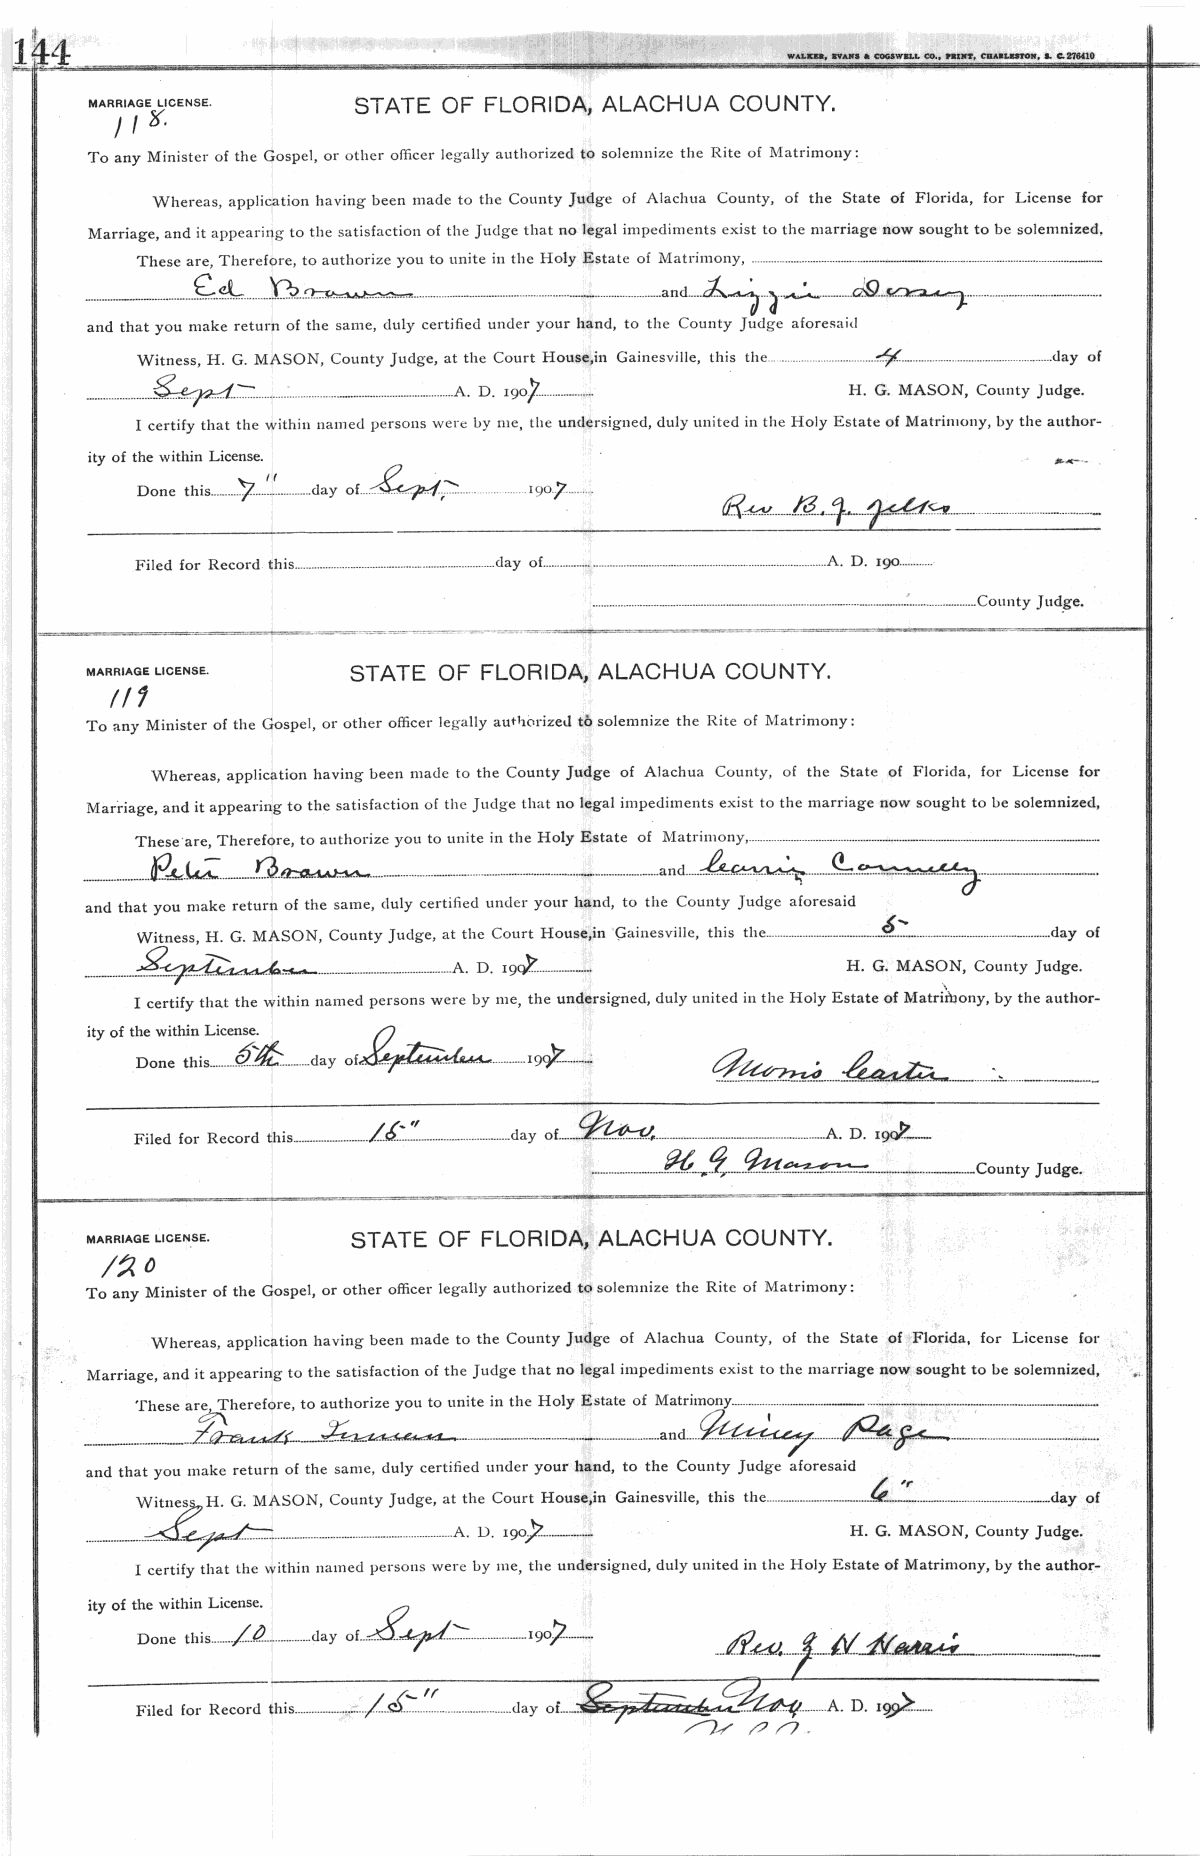 144
WALKER, EVANS & COGSWELL CO., PRINT, CHARLESTON, S. C. 276410
MARRIAGE LICENSE. STATE OF FLORIDA, ALACHUA COUNTY.
118.
To any Minister of the Gospel, or other officer legally authorized to solemnize the Rite of Matrimony:
Whereas, application having been made to the County Judge of Alachua County, of the State of Florida, for License for
Marriage, and it appearing to the satisfaction of the Judge that no legal impediments exist to the marriage now sought to be solemnized,
These are, Therefore, to authorize you to unite in the Holy Estate of Matrimony,
Ed Brown and Lizzie
and that you make return of the same, duly certified under your hand, to the County Judge aforesaid
Witness, H. G. MASON, County Judge, at the Court House, in Gainesville, this the 4 day of
Sept A. D. 1907 H. G. MASON, County Judge.
I certify that the within named persons were by me, the undersigned, duly united in the Holy Estate of Matrimony, by the author-
ity of the within License.
Done this 7" day of Sept. 1907
Rev B. J. Jelks
Filed for Record this day of A. D. 190
County Judge.
MARRIAGE LICENSE. STATE OF FLORIDA, ALACHUA COUNTY.
119
To any Minister of the Gospel, or other officer legally authorized to solemnize the Rite of Matrimony:
Whereas, application having been made to the County Judge of Alachua County, of the State of Florida, for License for
Marriage, and it appearing to the satisfaction of the Judge that no legal impediments exist to the marriage now sought to be solemnized,
These are, Therefore, to authorize you to unite in the Holy Estate of Matrimony,
Peter Brown and Connelly
and that you make return of the same, duly certified under your hand, to the County Judge aforesaid
Witness, H. G. MASON, County Judge, at the Court House, in Gainesville, this the 5 day of
September A. D. 1907 H. G. MASON, County Judge.
I certify that the within named persons were by me, the undersigned, duly united in the Holy Estate of Matrimony, by the author-
ity of the within License.
Done this 5th day of September 1907
Morris Carter
Filed for Record this 15" day of Nov. A. D. 1907
H. G. Mason County Judge.
MARRIAGE LICENSE. STATE OF FLORIDA, ALACHUA COUNTY.
120
To any Minister of the Gospel, or other officer legally authorized to solemnize the Rite of Matrimony:
Whereas, application having been made to the County Judge of Alachua County, of the State of Florida, for License for
Marriage, and it appearing to the satisfaction of the Judge that no legal impediments exist to the marriage now sought to be solemnized,
These are, Therefore, to authorize you to unite in the Holy Estate of Matrimony
Frank and Miney Page
and that you make return of the same, duly certified under your hand, to the County Judge aforesaid
Witness, H. G. MASON, County Judge, at the Court House, in Gainesville, this the 6" day of
Sept A. D. 1907 H. G. MASON, County Judge.
I certify that the within named persons were by me, the undersigned, duly united in the Holy Estate of Matrimony, by the author-
ity of the within License.
Done this 10 day of Sept 1907
Rev. J N Harris
Filed for Record this 15" day of September Nov. A. D. 1907